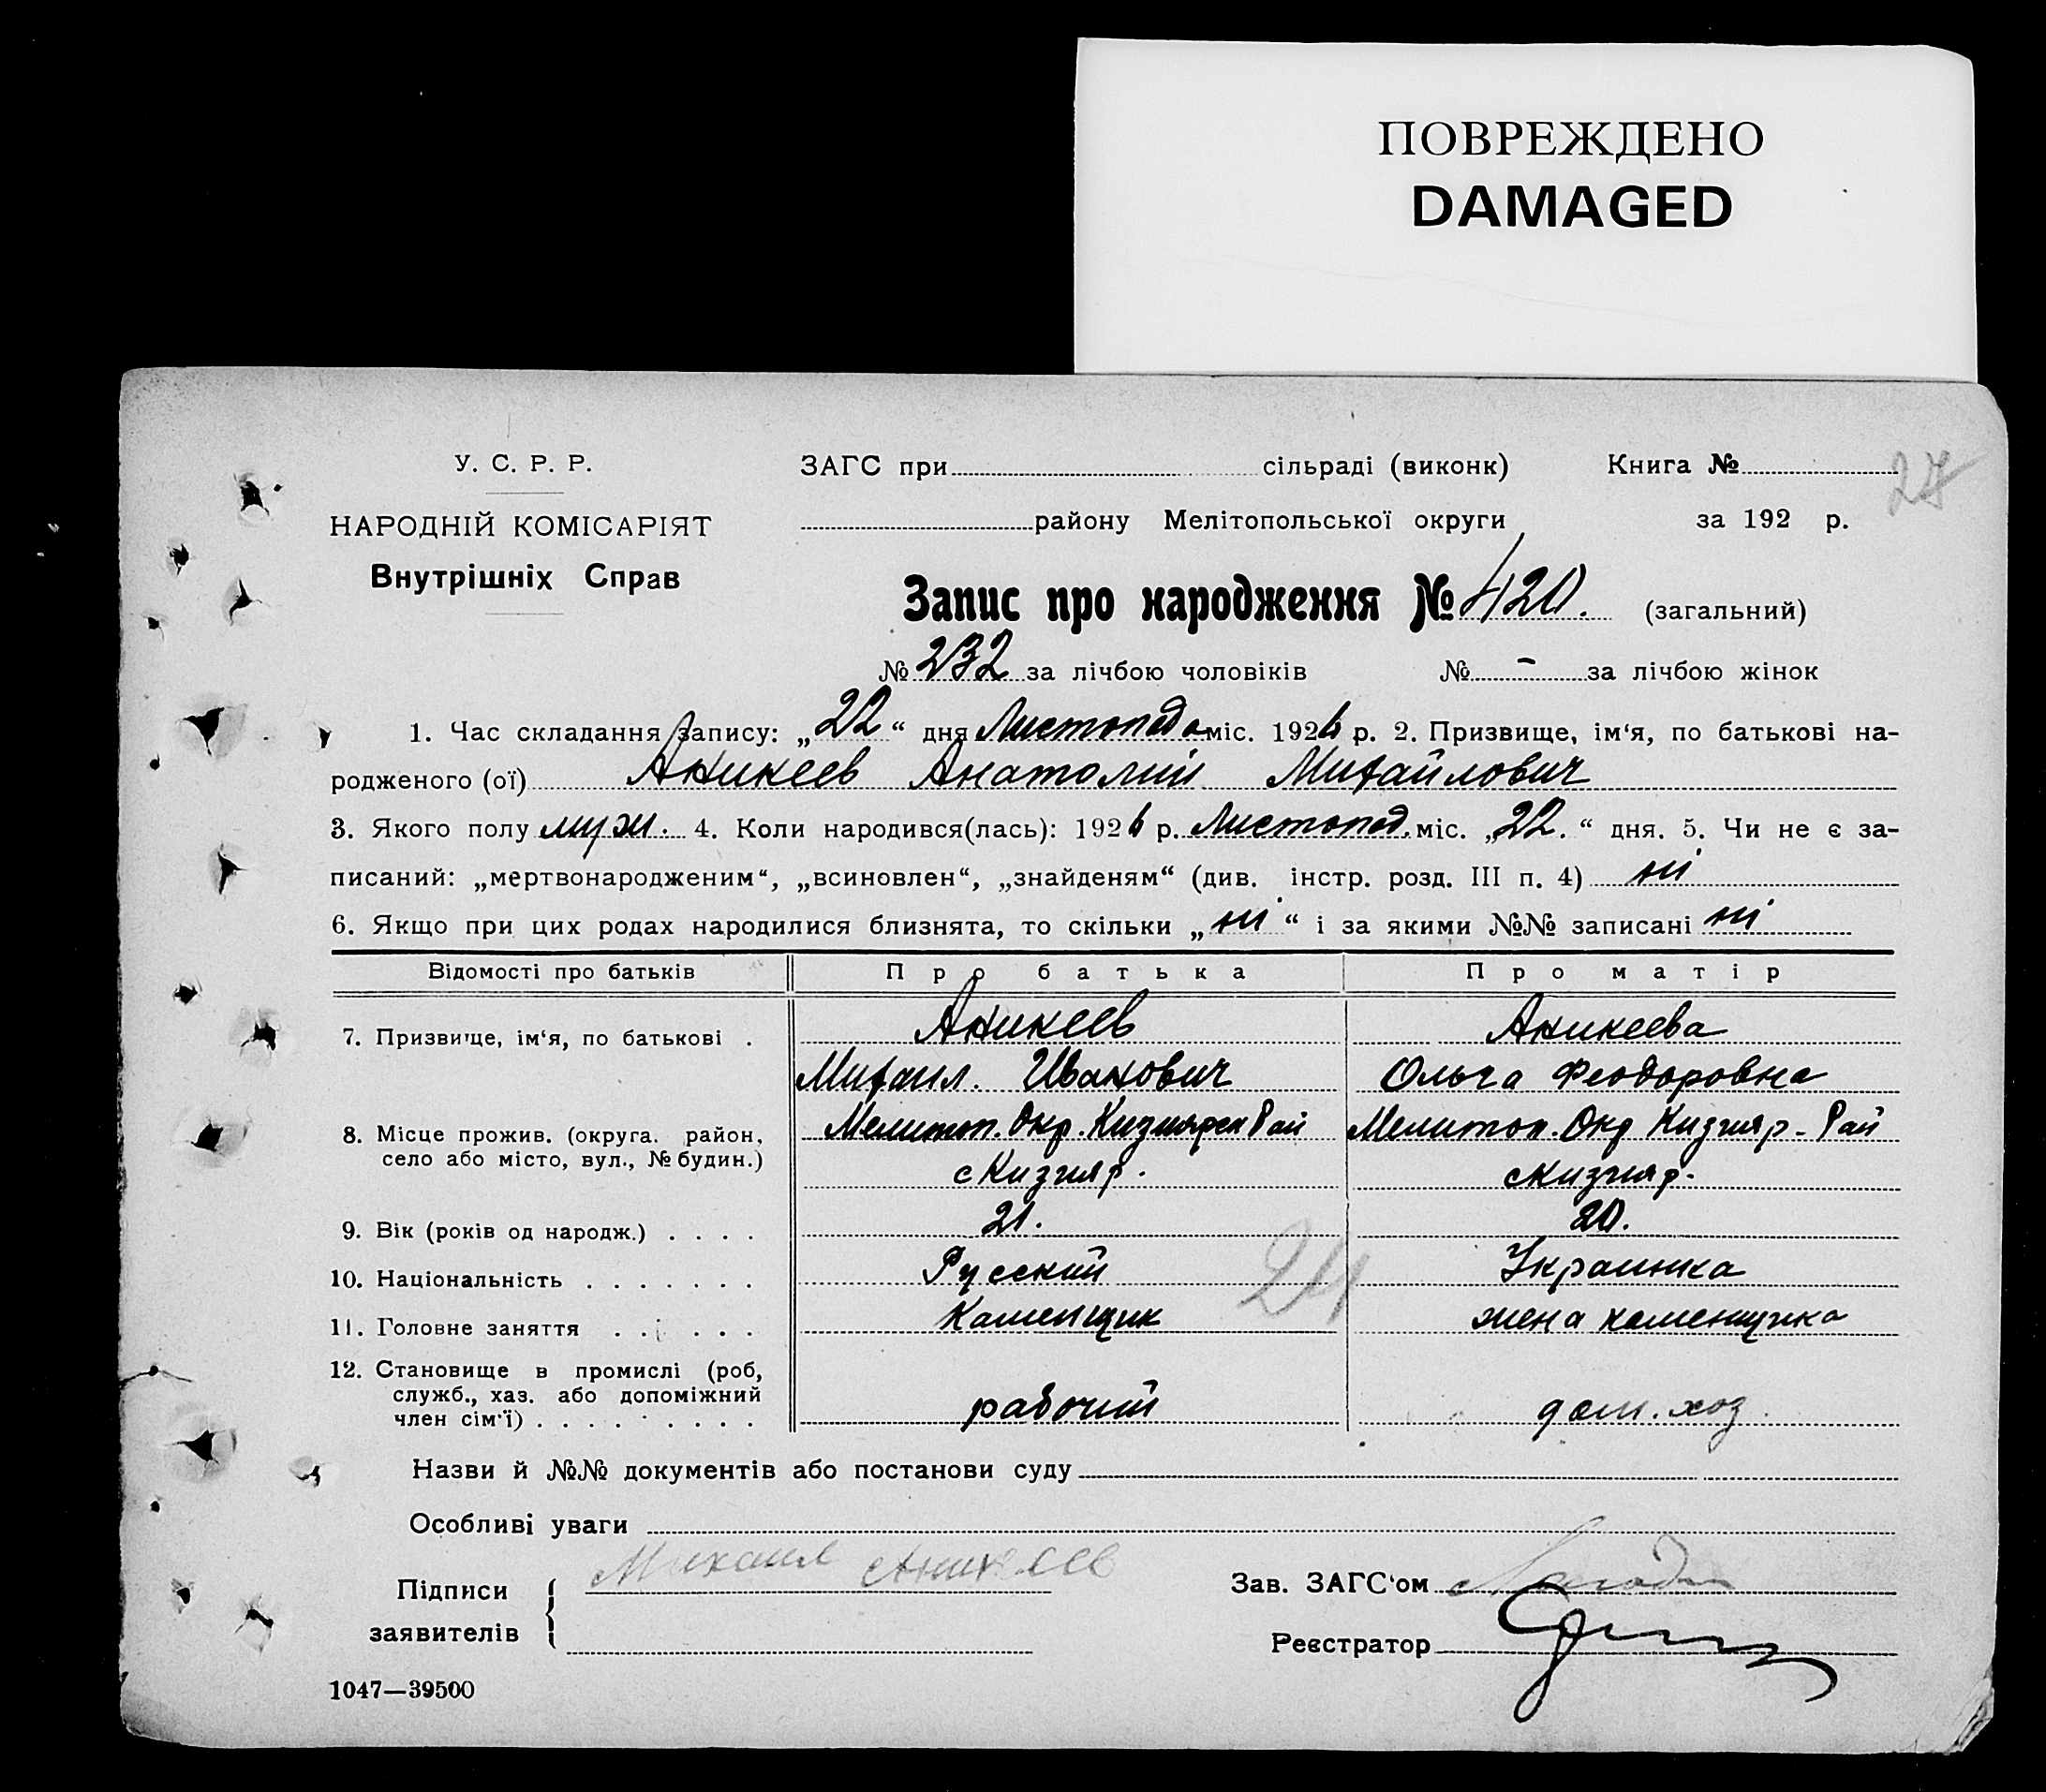 ПОВРЕЖДЕНО
DAMAGED
У. С. Р. Р.
НАРОДНІЙ КОМІСАРІЯТ
Внутрішніх Справ
ЗАГС при сільраді (виконк) Книга № 27
району Мелітопольської округи за 192 р.
Запис про народження № 420. (загальний)
№ 232 за лічбою чоловіків № - за лічбою жінок
1. Час складання запису: „22“ дня Листопада міс. 1926 р. 2. Призвище, ім‘я, по батькові на-
родженого (ої) Аникеев Анатолий Михайлович
3. Якого полу муж. 4. Коли народився(лась): 1926 р. Листопад. міс. „22.“ дня. 5. Чи не є за-
писаний: „мертвонародженим“, „всиновлен“, „знайденям“ (див. інстр. розд. III п. 4) ні
6. Якщо при цих родах народилися близнята, то скільки „ні“ і за якими №№ записані ні
Відомості про батьків Про батька Про матір
7. Призвище, ім‘я, по батькові . Аникеев Аникеева
Михаил. Иванович Ольга Феодоровна
8. Місце прожив. (округа. район, Мелитоп. Окр. Кизиярск Рай Мелитоп. Окр Кизияр- Рай
село або місто, вул., № будин.) с Кизияр. с Кизияр.
9. Вік (років од народж.) . . . . 21. 20.
10. Національність . . . . . . . Русский Украинка
24
11. Головне заняття . . . . . . Каменщик жена каменщика
12. Становище в промислі (роб,
служб., хаз. або допоміжний
член сім‘ї) . . . . . . . . . рабочий дом. хоз
Назви й №№ документів або постанови суду
Особливі уваги
Михаил Аникеев
Підписи
заявителів
Зав. ЗАГС‘ом
Реєстратор
1047—39500